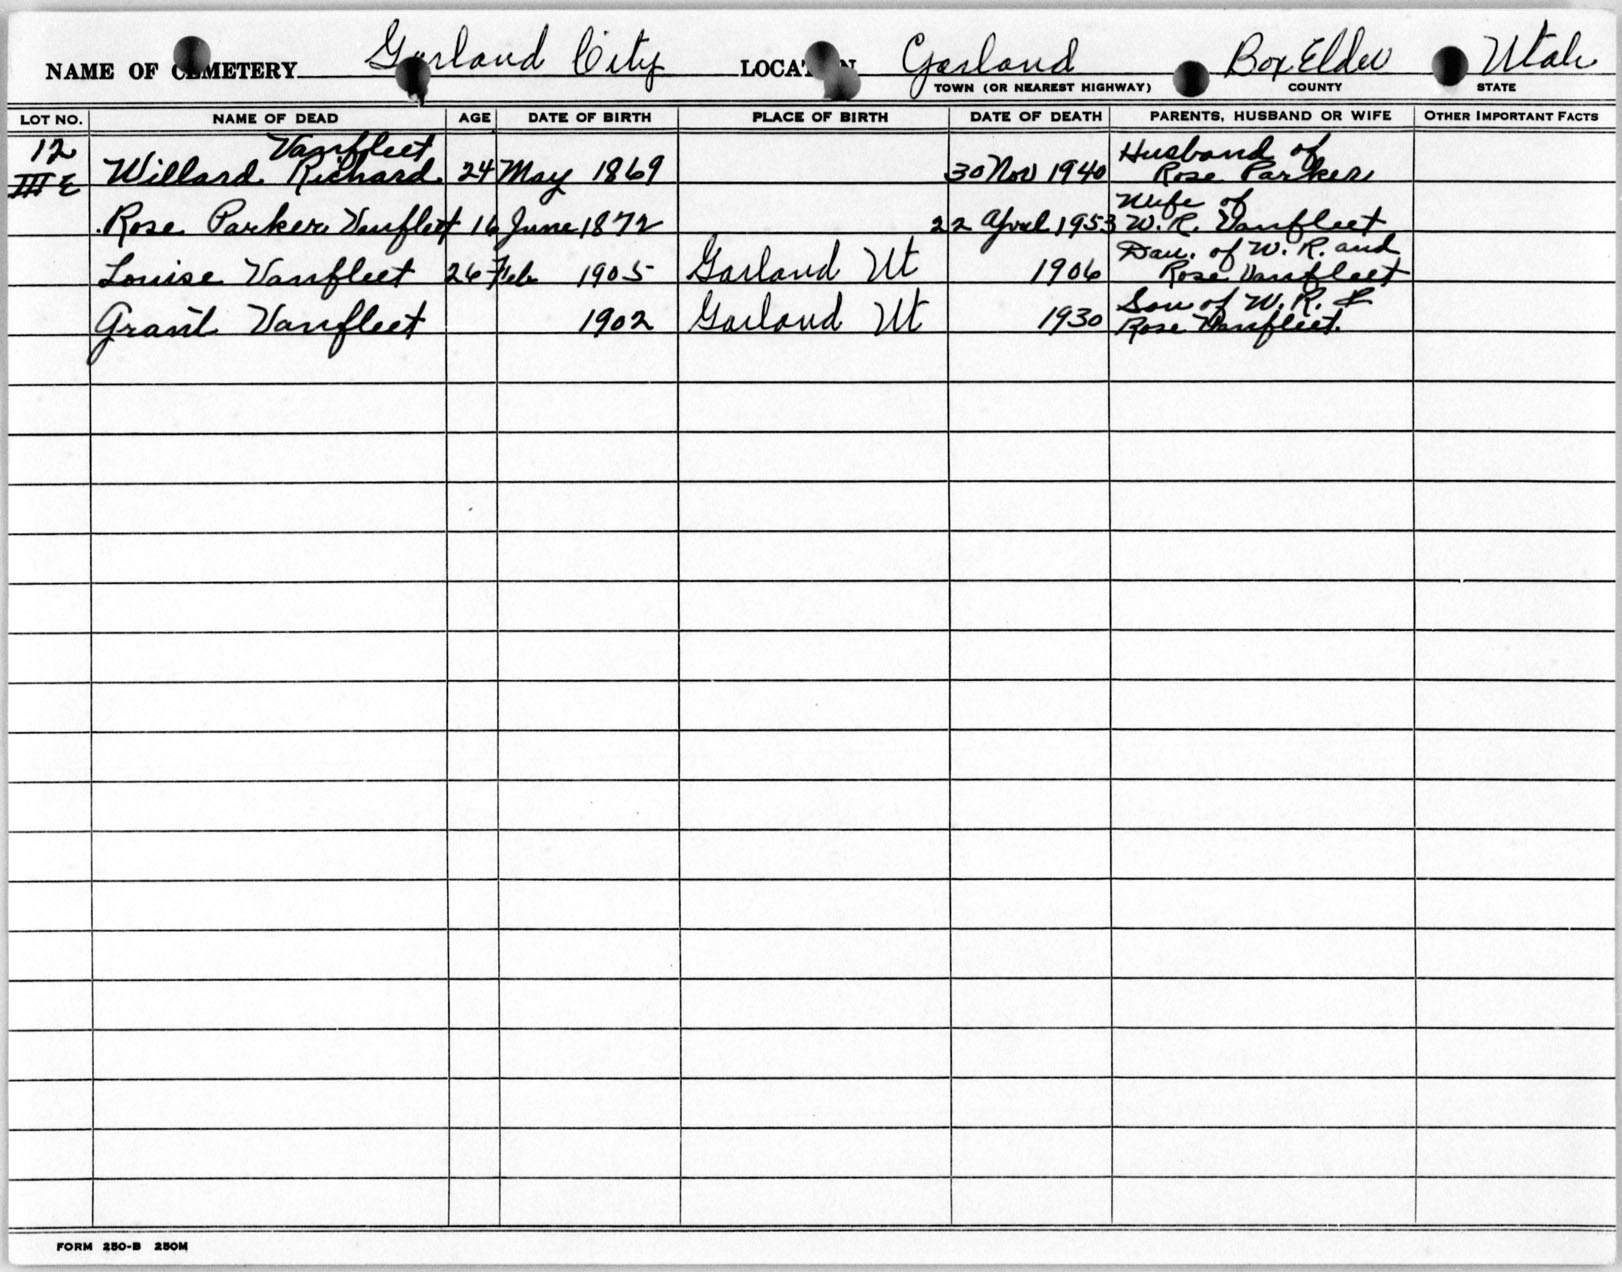 NAME OF CEMETERY Garland City LOCATION Garland Box Elder Utah
TOWN (OR NEAREST HIGHWAY) COUNTY STATE
LOT NO. NAME OF DEAD AGE DATE OF BIRTH PLACE OF BIRTH DATE OF DEATH PARENTS, HUSBAND OR WIFE OTHER IMPORTANT FACTS
12 Vanfleet Husband of
III E Willard Richard 24 May 1869 30 Nov 1940 Rose Parker
Wife of
Rose Parker Vanfleet 16 June 1872 22 April 1953 W. R. Vanfleet
Dau. of W. R. and
Louise Vanfleet 26 Feb 1905 Garland Ut 1906 Rose Vanfleet
Son of W. R. &
Grant Vanfleet 1902 Garland Ut 1930 Rose Vanfleet.
FORM 250-B 250M